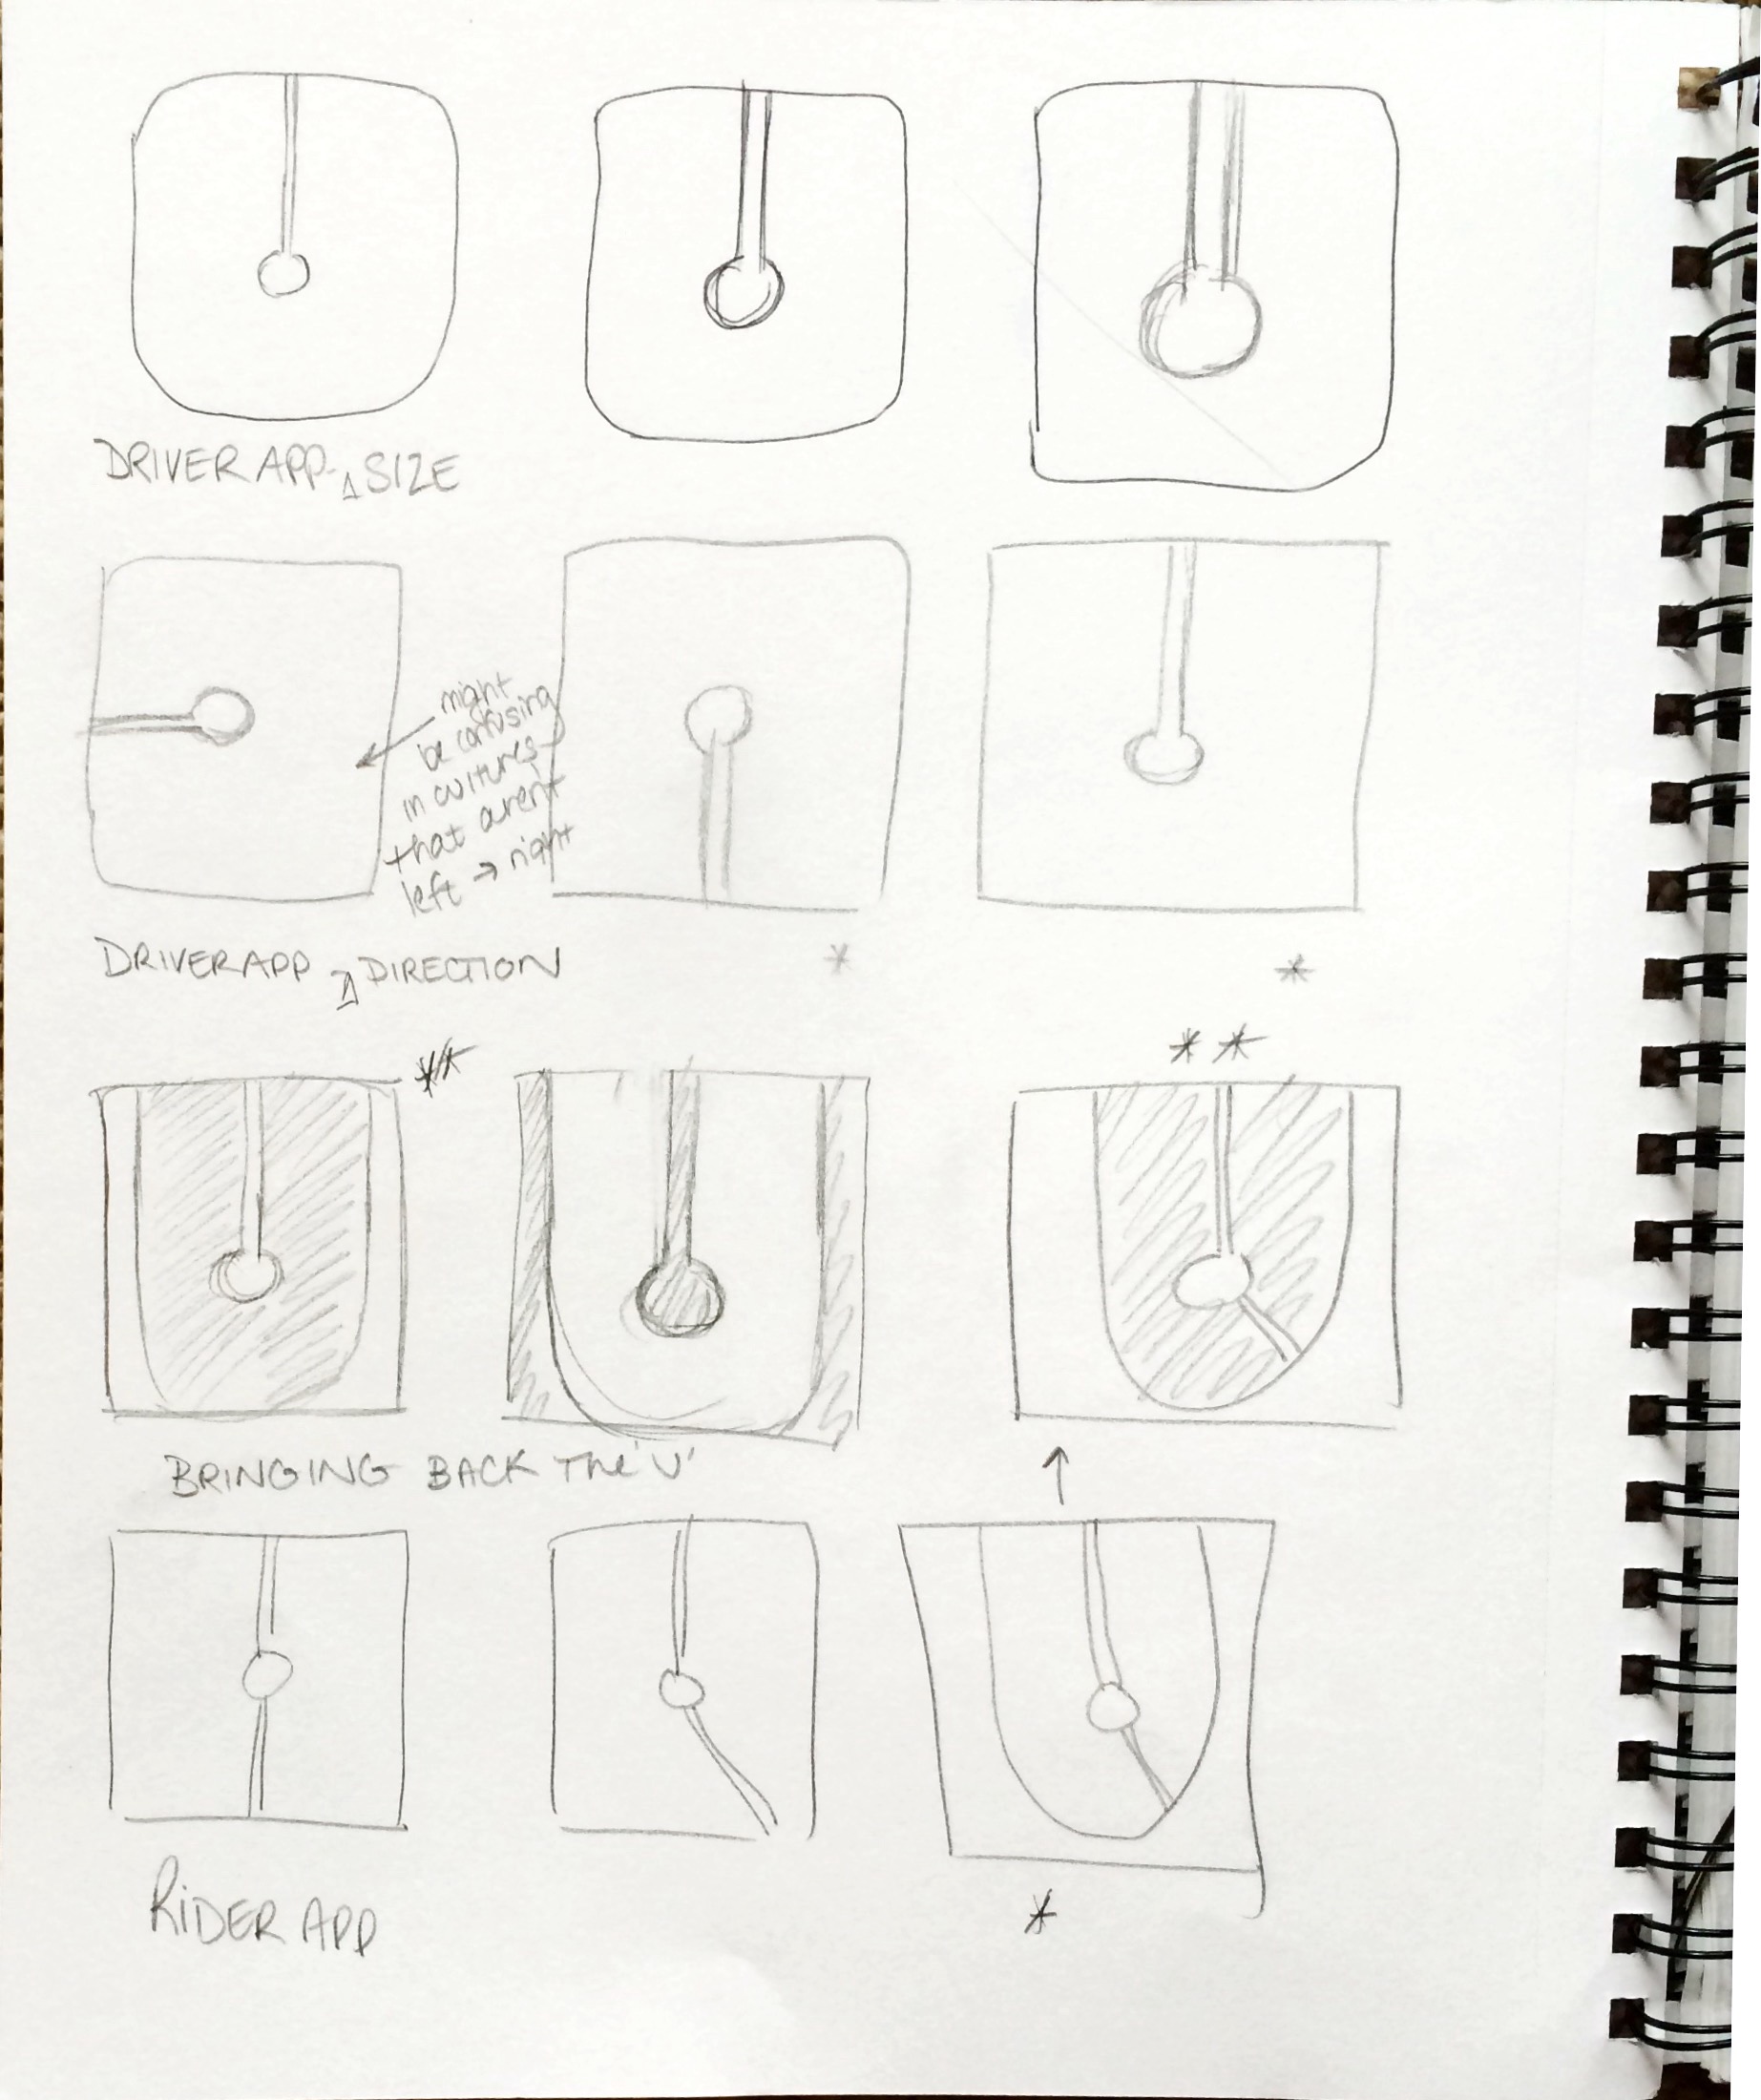 DRIVER APP - Δ SIZE
might
be confusing
in cultures
that aren't
left → right
DRIVER APP Δ DIRECTION
*
*
**
**
BRINGING BACK THE 'U'
↑
RIDER APP
*